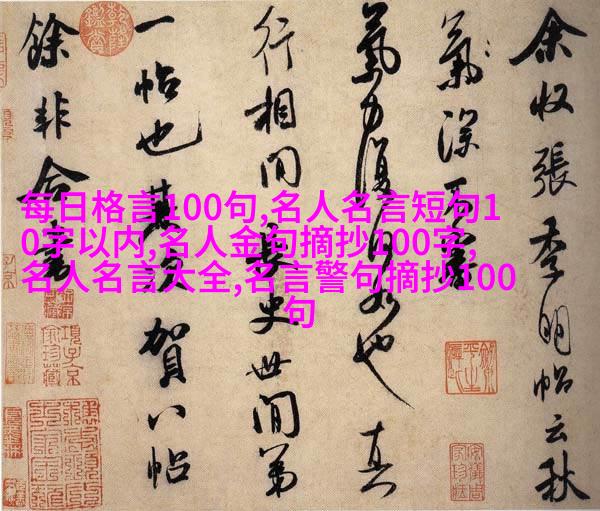 每日格言100句,名人名言短句1
0字以内,名人金句摘抄100字,
名人名言大全,名言警句摘抄100
句
余收張季明帖云秋
氣深不審
氣力復何如也真
行相間長史世間第
一帖也其次賀八帖
餘非合書